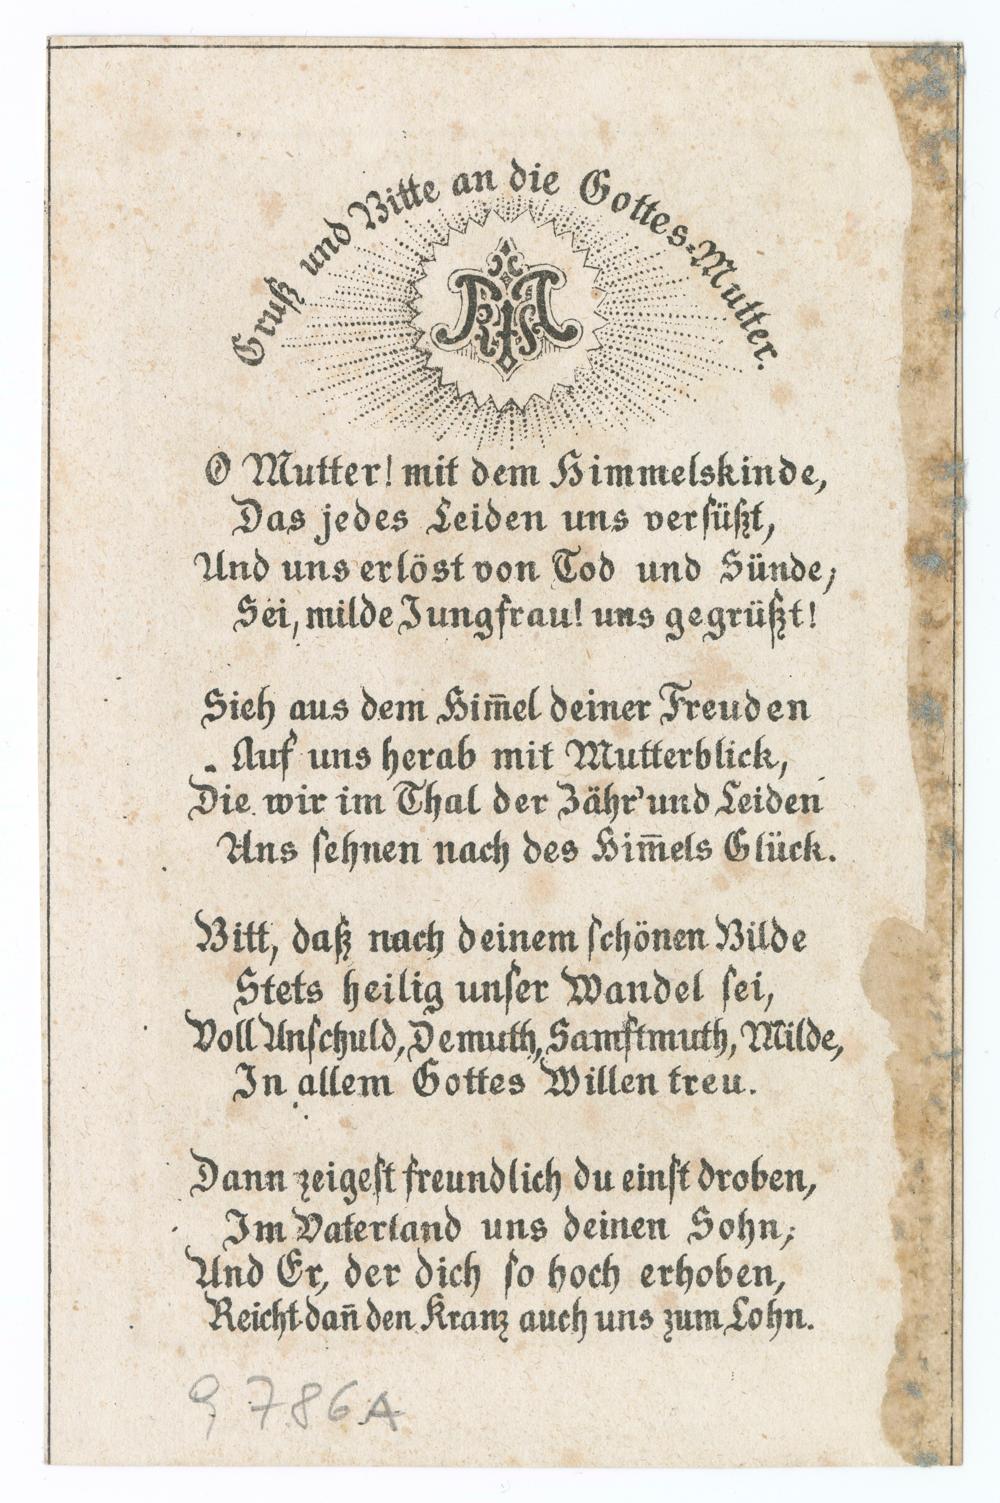 Gruß und Bitte an die Gottes-Mutter.
O Mutter! mit dem Himmelskinde,
Das jedes Leiden uns versüßt,
Und uns erlöst von Tod und Sünde;
Sei, milde Jungfrau! uns gegrüßt!
Sieh aus dem Him̅el deiner Freuden
Auf uns herab mit Mutterblick,
Die wir im Thal der Zähr' und Leiden
Uns sehnen nach des Him̅els Glück.
Bitt, daß nach deinem schönen Bilde
Stets heilig unser Wandel sei,
Voll Unschuld, Demuth, Samftmuth, Milde,
In allem Gottes Willen treu.
Dann zeigest freundlich du einst droben,
Im Vaterland uns deinen Sohn;
Und Er, der dich so hoch erhoben,
Reicht dan̅ den Kranz auch uns zum Lohn.
9786A